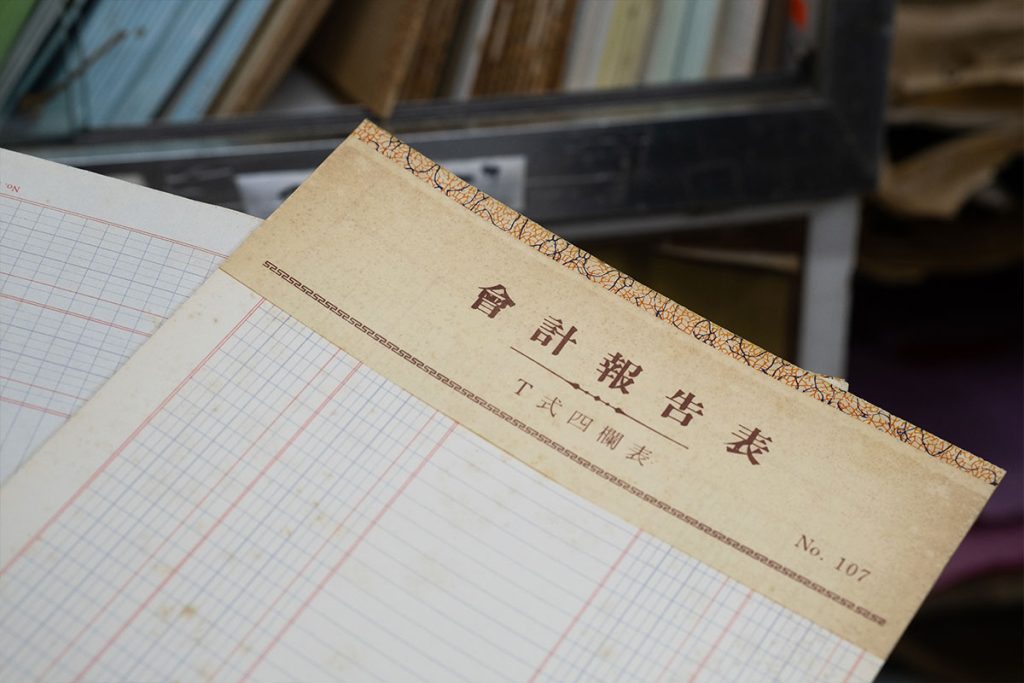 會計報告表
T式四欄表
No. 107
No.